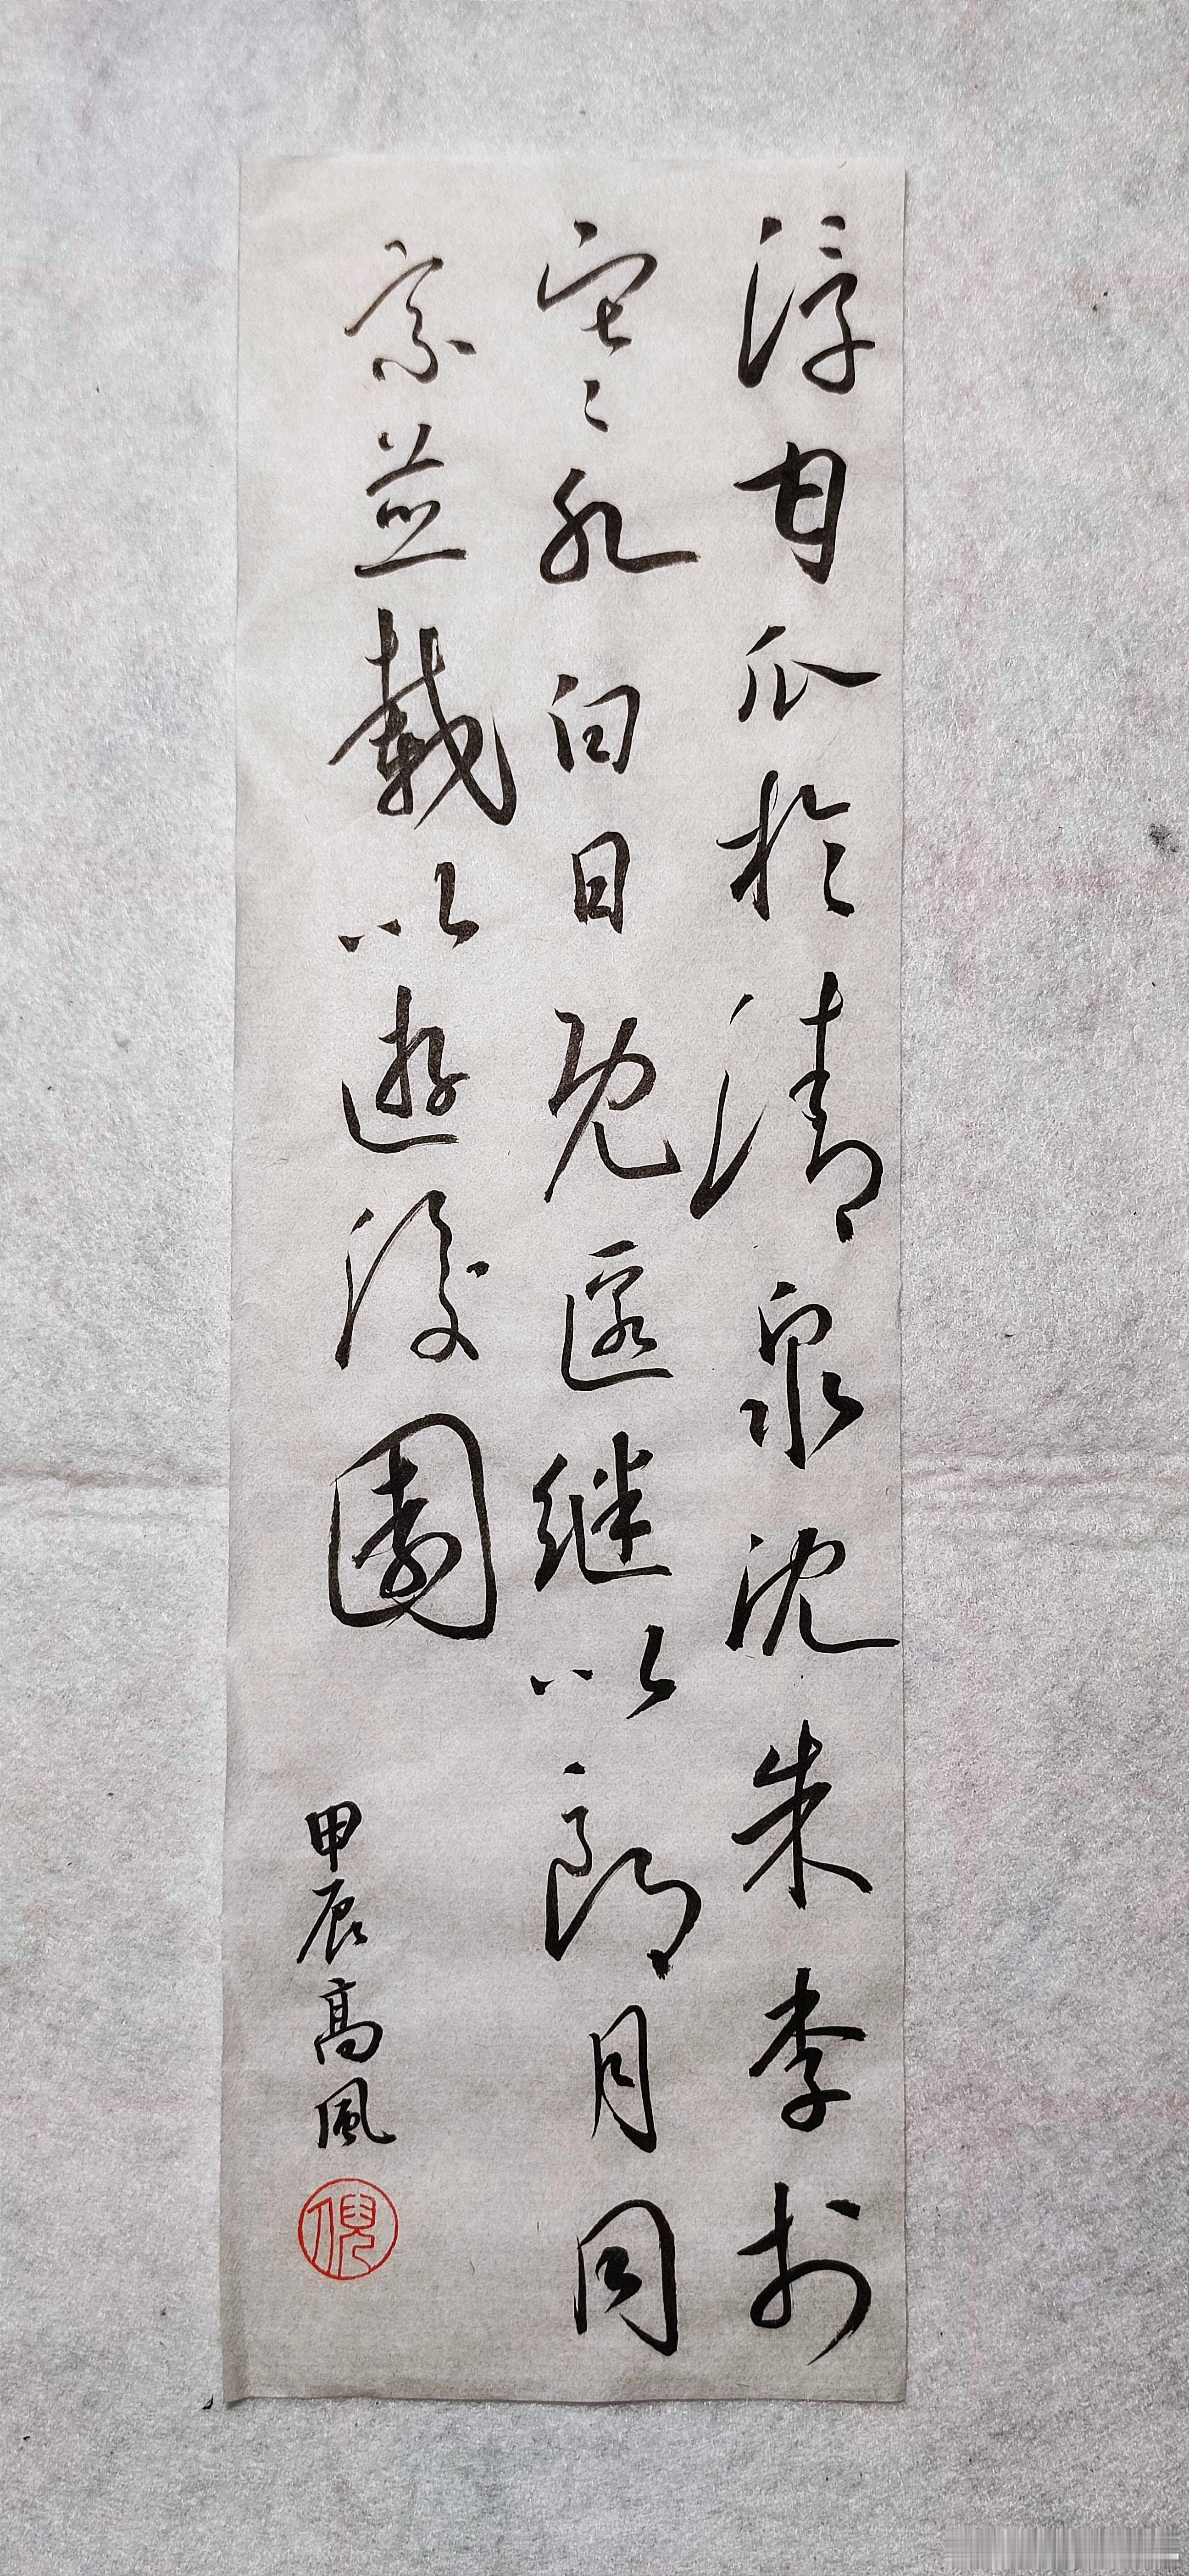 浮甘瓜於清泉沈朱李於
寒水白日既匿继以朗月同
乘並載以遊後園
甲辰高風
倪